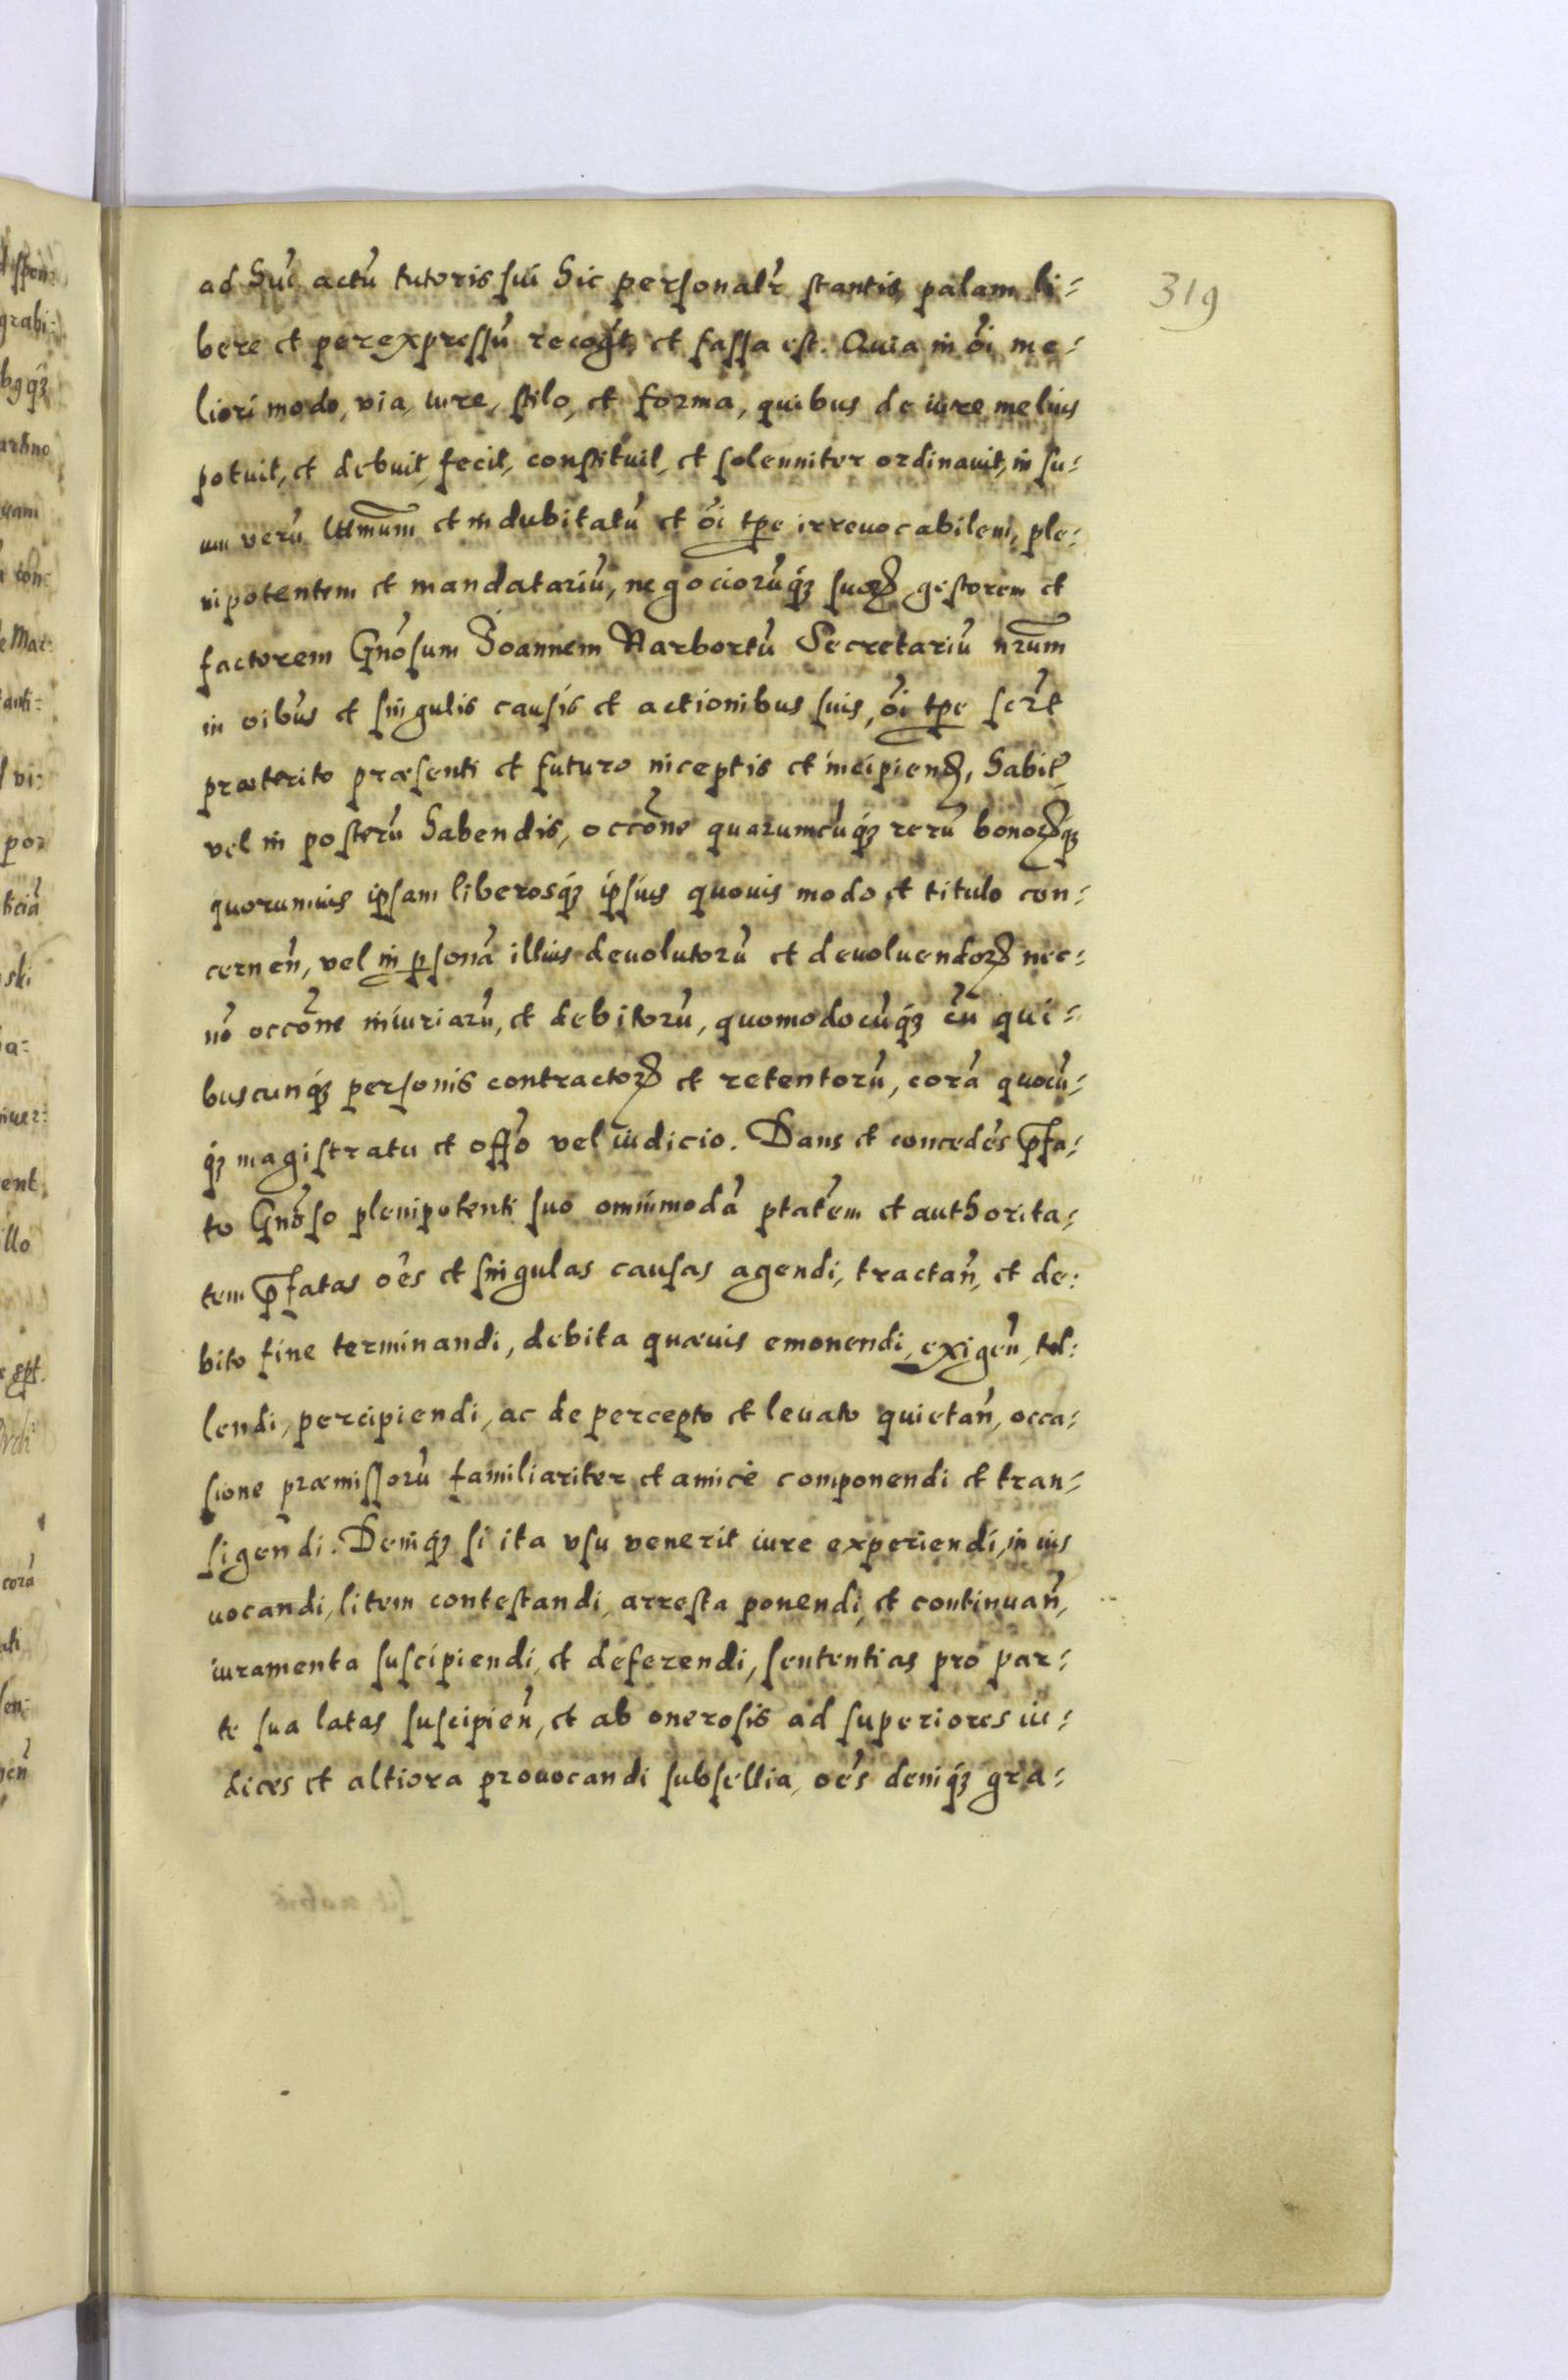 319
ad hūc actū tutoris sui hic personalr̄ stantis, palam li-
bere et per expressū recog̃t, et fassa est. Quia in õi me-
liori modo, via, iure, stilo, et forma, quibus de iure melius
potuit, et debuit, fecit, constituit, et solenniter ordinauit, in su-
um verū l̃ttmum et indubitatū et õi tp̄e irreuocabilem, ple-
nipotentem et mandatariū, negociorūq́ꝫ suoꝝ gestorem et
factorem Gnõsum Joannem Narbortū Secretariū nr̃um
in oibūs et singulis causis et actionibus suis, õi tp̄e scr̃t
præterito præsenti et futuro inceptis et incipienꝝ, habit̃
vel in posterū habendis, occõne quarumcūq́ꝫ rerū bonoꝝq́ꝫ
quorumuis ipsam liberosq́ꝫ ipsius quouis modo et titulo con-
cerneñ, vel in p̱sonā illius deuolutorū et deuoluendoꝝ nec-
nō occõne iniuriarū, et debitorū, quomodocūq́ꝫ cū qui-
buscunq́ꝫ personis contractoꝝ et retentorū, corā quocū-
q́ꝫ magistratu et offõ vel iudicio. Dans et concedẽs p̃fa-
to Gnõso plenipotenti suo omnimodā ptat̃em et authorita-
tem p̃fatas oẽs et singulas causas agendi, tractañ, et de-
bito fine terminandi, debita quævis emonendi, exigeñ, tol-
lendi, percipiendi, ac de percepto et leuato quietañ, occa-
sione præmissorū familiariter et amicè componendi et tran-
sigendi. Deniq́ꝫ si ita vsu venerit iure experiendi, in ius
uocandi, litem contestandi, arresta ponendi, et continuañ,
iuramenta suscipiendi, et deferendi, sententias pro par-
te sua latas suscipieñ, et ab onerosis ad superiores iu-
dices et altiora prouocandi subsellia, oẽs deniq́ꝫ gra-